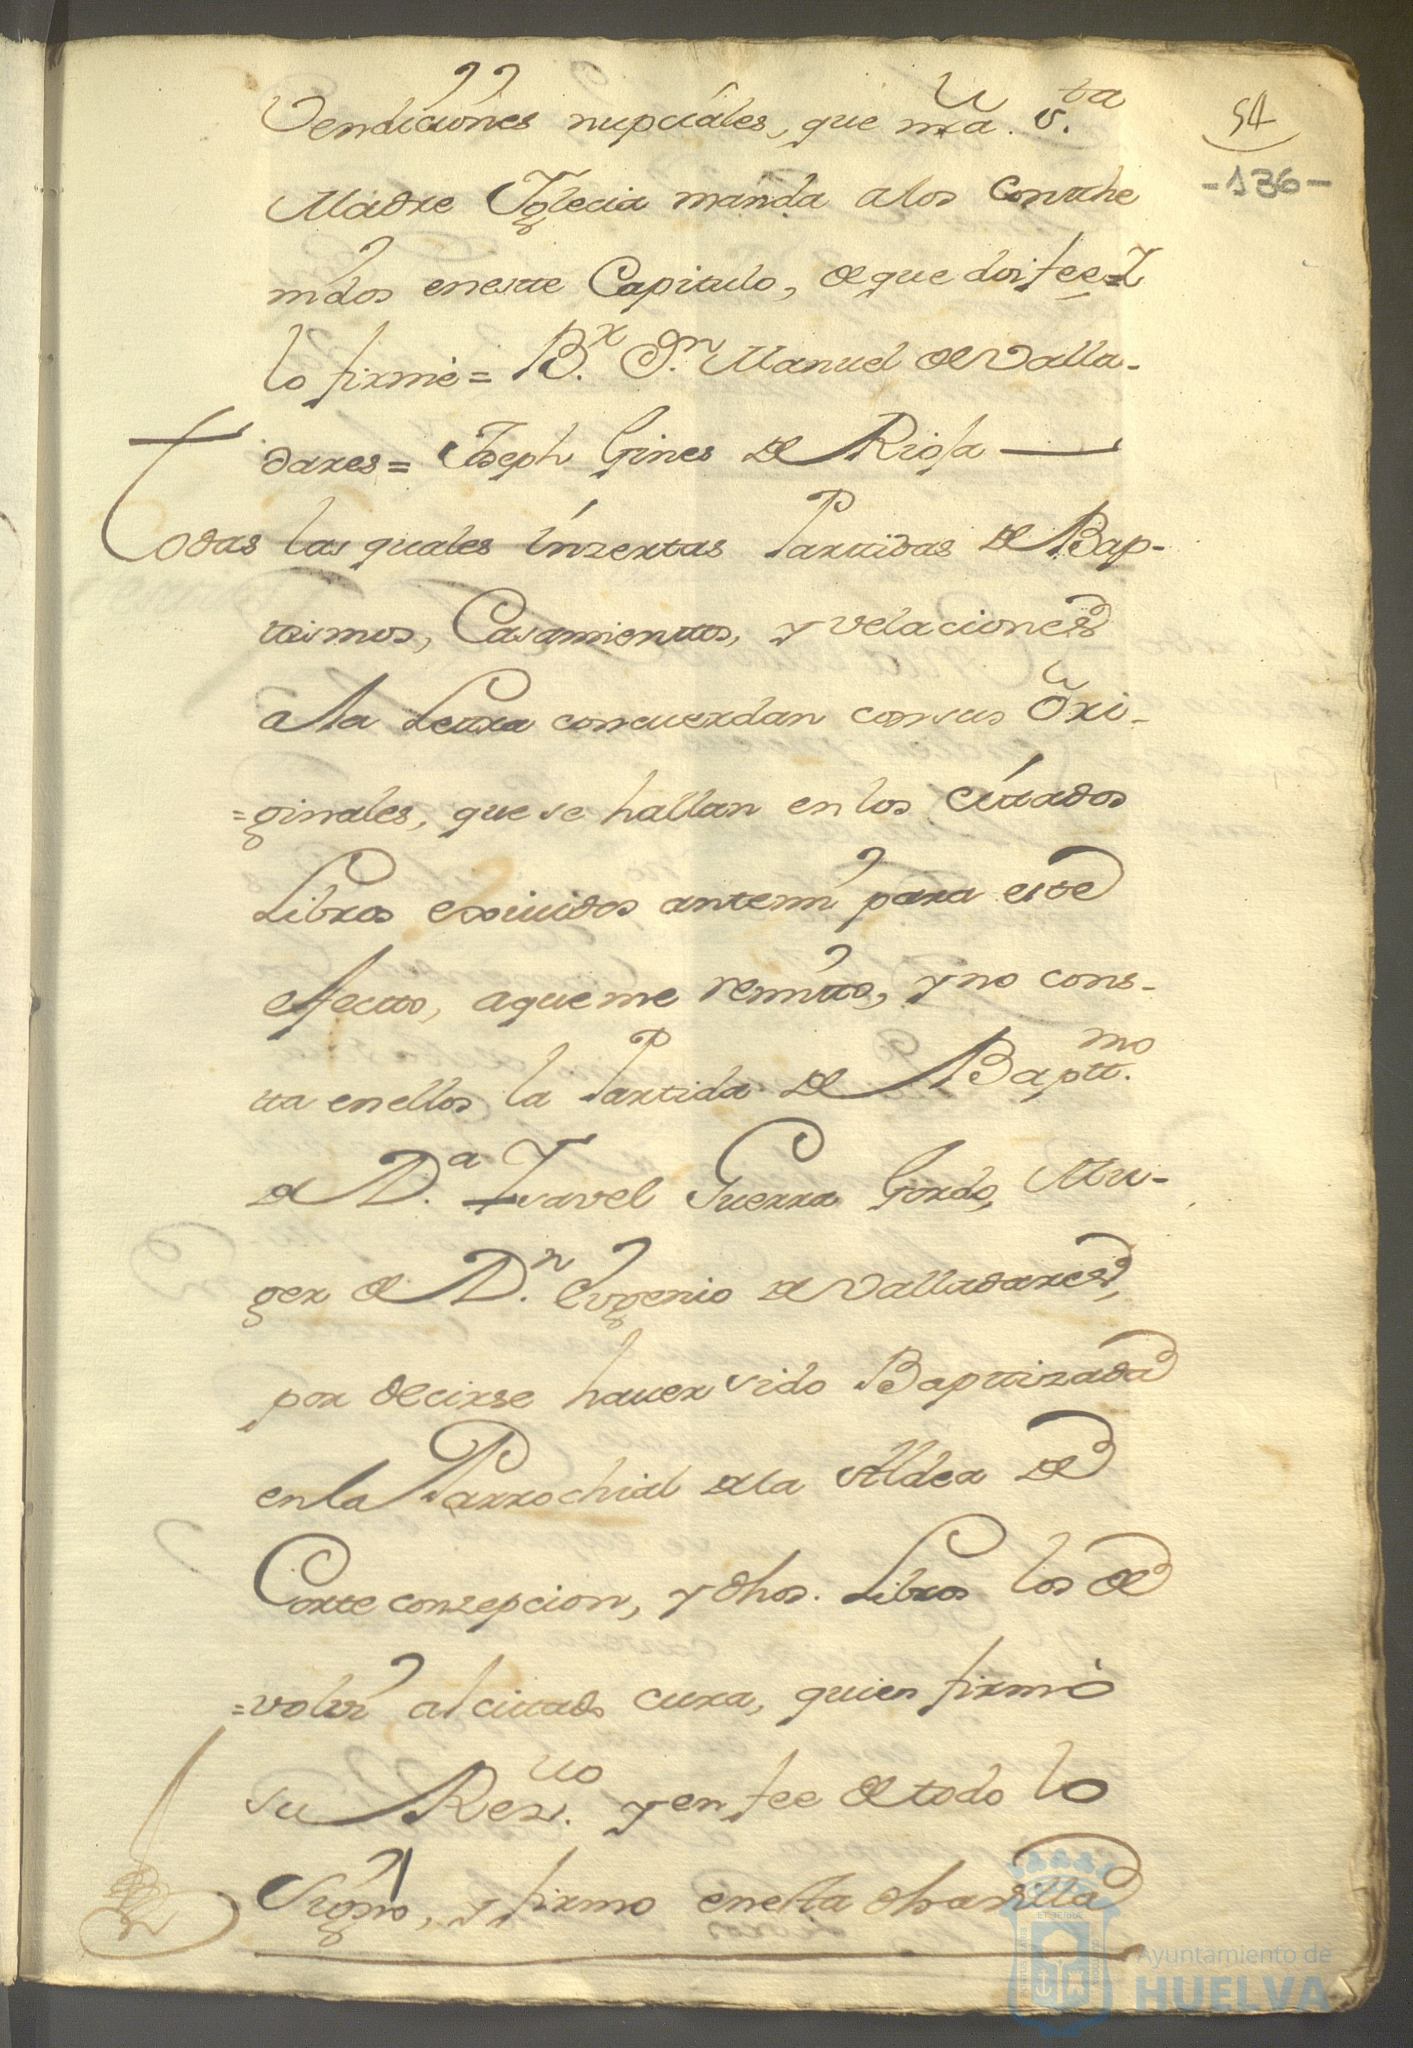 54
-136-
Vendiciones nupciales, que nra. S.ta
Madre Yglecia manda a los Conthe
nidos eneste Capitulo, de que doi fee=Y
lo firmé= B.r D.n Manuel de Valla-
dares= Joseph Gines de Rioja
Todas las quales inzertas Partidas de Bap-
tismos, Casamienttos, y velaciones
a la Letra concuerdan con sus Ori-
=ginales, que se hallan en los Cittados
Libros exsiuidos antemi para este
efectto, aque me remitto, y no cons-
tta enellos la Partida de Baptt.mo
de D.a Ysavel Guerra Gordo, Mu-
ger de D.n Eugenio de Valladares,
por decirse hauer sido Bapttizada
en la Parrochial de la Aldea de
Corte conzepcion, y dhos. Libros los de
=volvi al cittado cura, quien firmó
su Rez.uo y en fee de todo lo
Signo, y firmo en esta dha villa
Ayuntamiento de
HUELVA